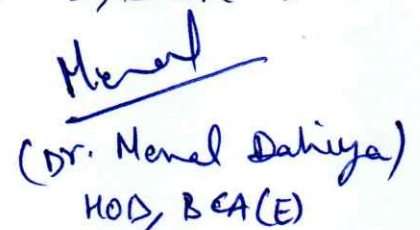 Menal
(Dr. Menal Dahiya)
HOD, BCA(E)